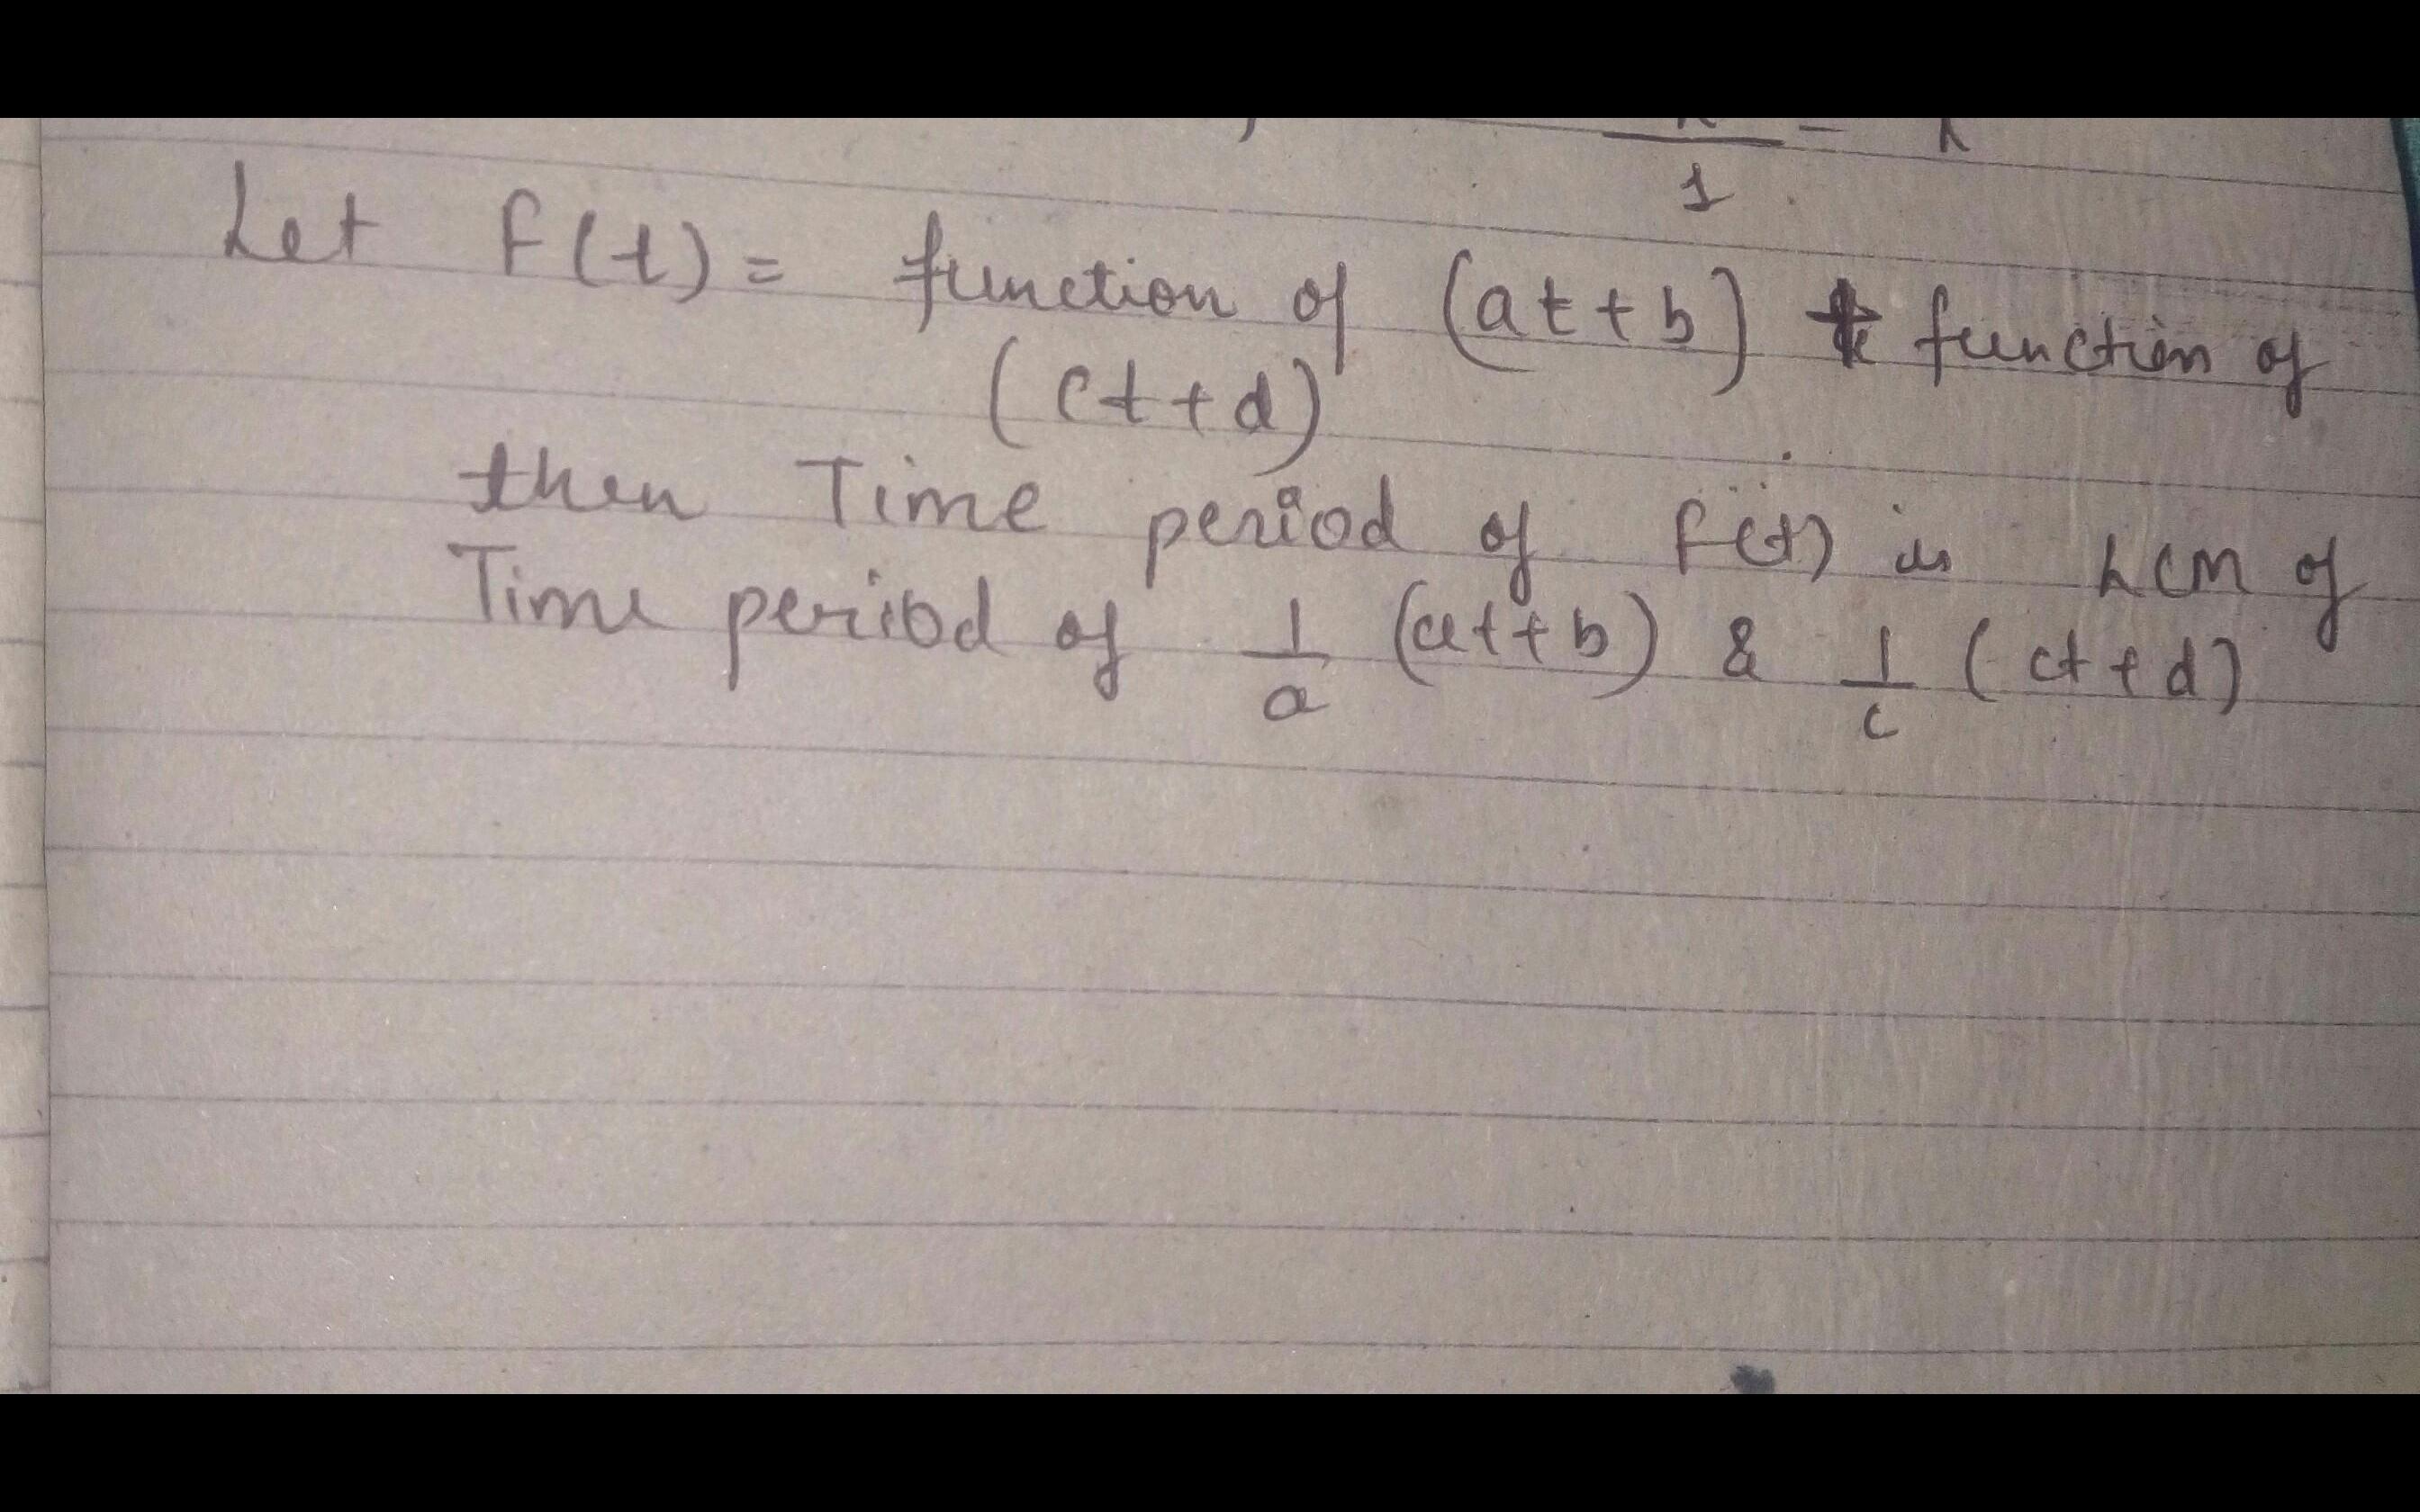 1
Let F(t) = function of (at + b) + function of
(ct + d)
then Time period of f(t) is LCM of
Time period of 1/a (at + b) & 1/c (ct + d)